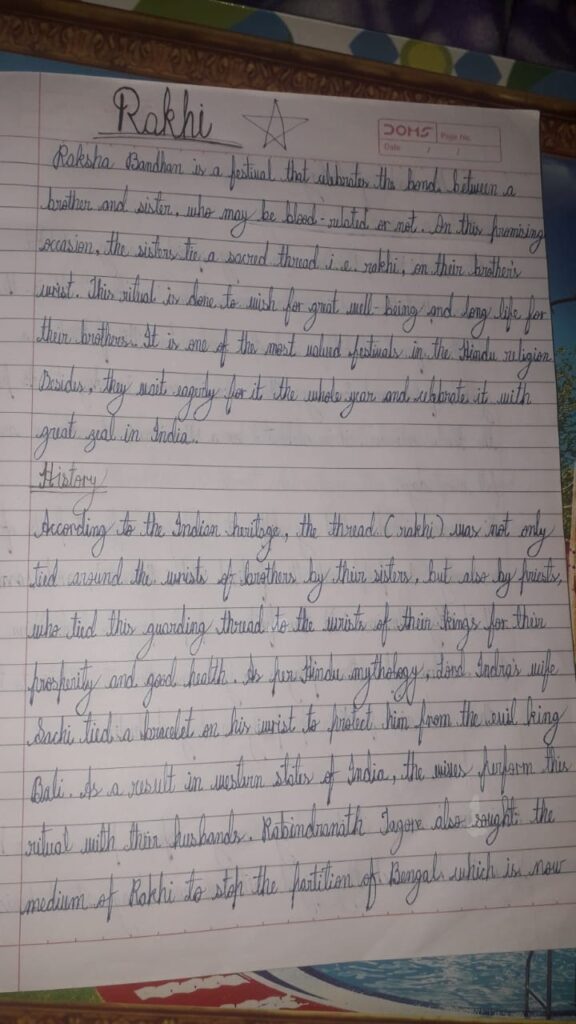 Rakhi
DOMS Page No.
Date / /
Raksha Bandhan is a festival that celebrates the bond between a
brother and sister, who may be blood-related or not. On this promising
occasion, the sisters tie a sacred thread i.e. rakhi, on their brother's
wrist. This ritual is done to wish for great well-being and long life for
their brothers. It is one of the most valued festivals in the Hindu religion
Besides, they wait eagerly for it the whole year and celebrate it with
great zeal in India.
History
According to the Indian heritage, the thread (rakhi) was not only
tied around the wrists of brothers by their sisters, but also by priests,
who tied this guarding thread to the wrists of their kings for their
prosperity and good health. As per Hindu mythology, Lord Indra's wife
Sachi tied a bracelet on his wrist to protect him from the evil king
Bali. As a result in western states of India, the wives perform this
ritual with their husbands. Rabindranath Tagore also sought the
medium of Rakhi to stop the partition of Bengal which is now